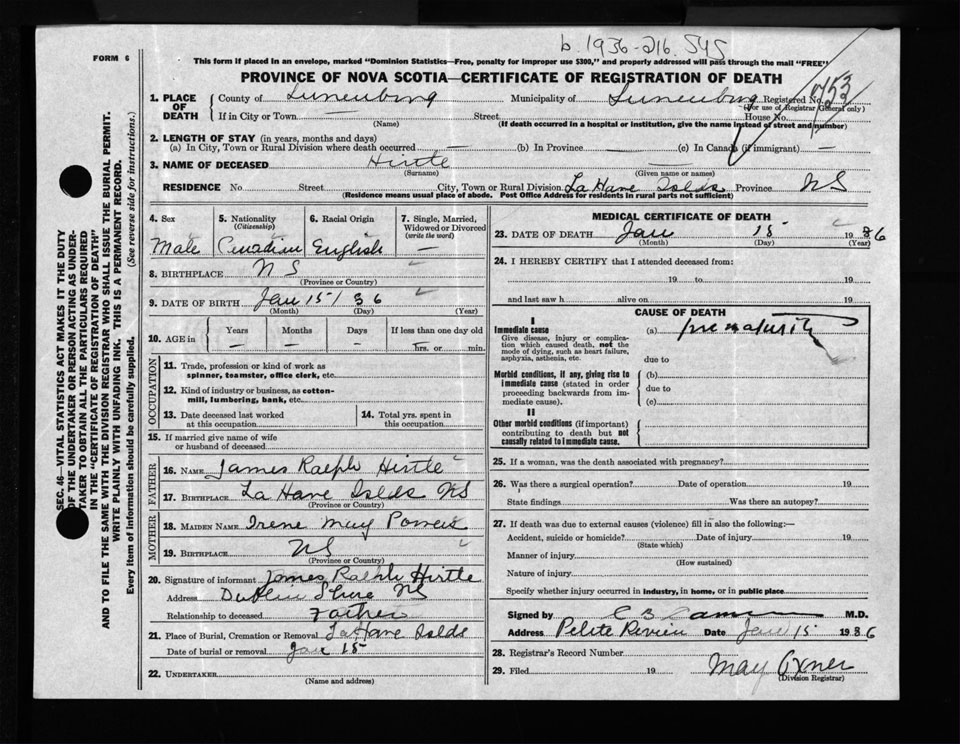 b. 1936-216.545
FORM 6
This form if placed in an envelope, marked "Dominion Statistics—Free, penalty for improper use $300," and properly addressed will pass through the mail "FREE"
PROVINCE OF NOVA SCOTIA—CERTIFICATE OF REGISTRATION OF DEATH
SEC. 46—VITAL STATISTICS ACT MAKES IT THE DUTY
OF THE UNDERTAKER OR PERSON ACTING AS UNDER-
TAKER TO OBTAIN ALL THE PARTICULARS REQUIRED
IN THE "CERTIFICATE OF REGISTRATION OF DEATH"
AND TO FILE THE SAME WITH THE DIVISION REGISTRAR WHO SHALL ISSUE THE BURIAL PERMIT.
WRITE PLAINLY WITH UNFADING INK. THIS IS A PERMANENT RECORD.
Every item of information should be carefully supplied. (See reverse side for instructions.)
1. PLACE OF DEATH County of Lunenburg Municipality of Lunenburg Registered No. 753
(For use of Registrar General only)
If in City or Town — Street House No.
(Name) (If death occurred in a hospital or institution, give the name instead of street and number)
2. LENGTH OF STAY (in years, months and days)
(a) In City, Town or Rural Division where death occurred — (b) In Province — (c) In Canada (if immigrant) —
3. NAME OF DECEASED Hirtle —
(Surname) (Given name or names)
RESIDENCE No. Street City, Town or Rural Division LaHave Islds Province NS
(Residence means usual place of abode. Post Office Address for residents in rural parts not sufficient)
4. Sex 5. Nationality (Citizenship) 6. Racial Origin 7. Single, Married, Widowed or Divorced (write the word)
Male Canadian English
8. BIRTHPLACE NS
(Province or Country)
9. DATE OF BIRTH Jan 15/36
(Month) (Day) (Year)
10. AGE in Years Months Days If less than one day old
— — — — hrs. or min.
OCCUPATION
11. Trade, profession or kind of work as
spinner, teamster, office clerk, etc.
12. Kind of industry or business, as cotton-
mill, lumbering, bank, etc.
13. Date deceased last worked
at this occupation
14. Total yrs. spent in
this occupation
15. If married give name of wife
or husband of deceased
FATHER
16. NAME James Ralph Hirtle
17. BIRTHPLACE La Have Islds NS
(Province or Country)
MOTHER
18. MAIDEN NAME Irene May Powers
19. BIRTHPLACE NS
(Province or Country)
20. Signature of informant James Ralph Hirtle
Address Dublin Shore NS
Relationship to deceased Father
21. Place of Burial, Cremation or Removal LaHave Islds
Date of burial or removal Jan 15
22. UNDERTAKER
(Name and address)
MEDICAL CERTIFICATE OF DEATH
23. DATE OF DEATH Jan 15 1936
(Month) (Day) (Year)
24. I HEREBY CERTIFY that I attended deceased from:
19 to 19
and last saw h alive on 19
CAUSE OF DEATH
I
Immediate cause (a) prematurity
Give disease, injury or complica-
tion which caused death, not the
mode of dying, such as heart failure,
asphyxia, asthenia, etc.
due to
Morbid conditions, if any, giving rise to
immediate cause (stated in order
proceeding backwards from im-
mediate cause).
(b)
due to
(c)
II
Other morbid conditions (if important)
contributing to death but not
causally related to immediate cause.
25. If a woman, was the death associated with pregnancy?
26. Was there a surgical operation? Date of operation 19
State findings Was there an autopsy?
27. If death was due to external causes (violence) fill in also the following:—
Accident, suicide or homicide? Date of injury 19
(State which)
Manner of injury
(How sustained)
Nature of injury
Specify whether injury occurred in industry, in home, or in public place
Signed by C B M.D.
Address Petite Riviere Date Jan 15 1936
28. Registrar's Record Number
29. Filed 19 May Oxner
(Division Registrar)